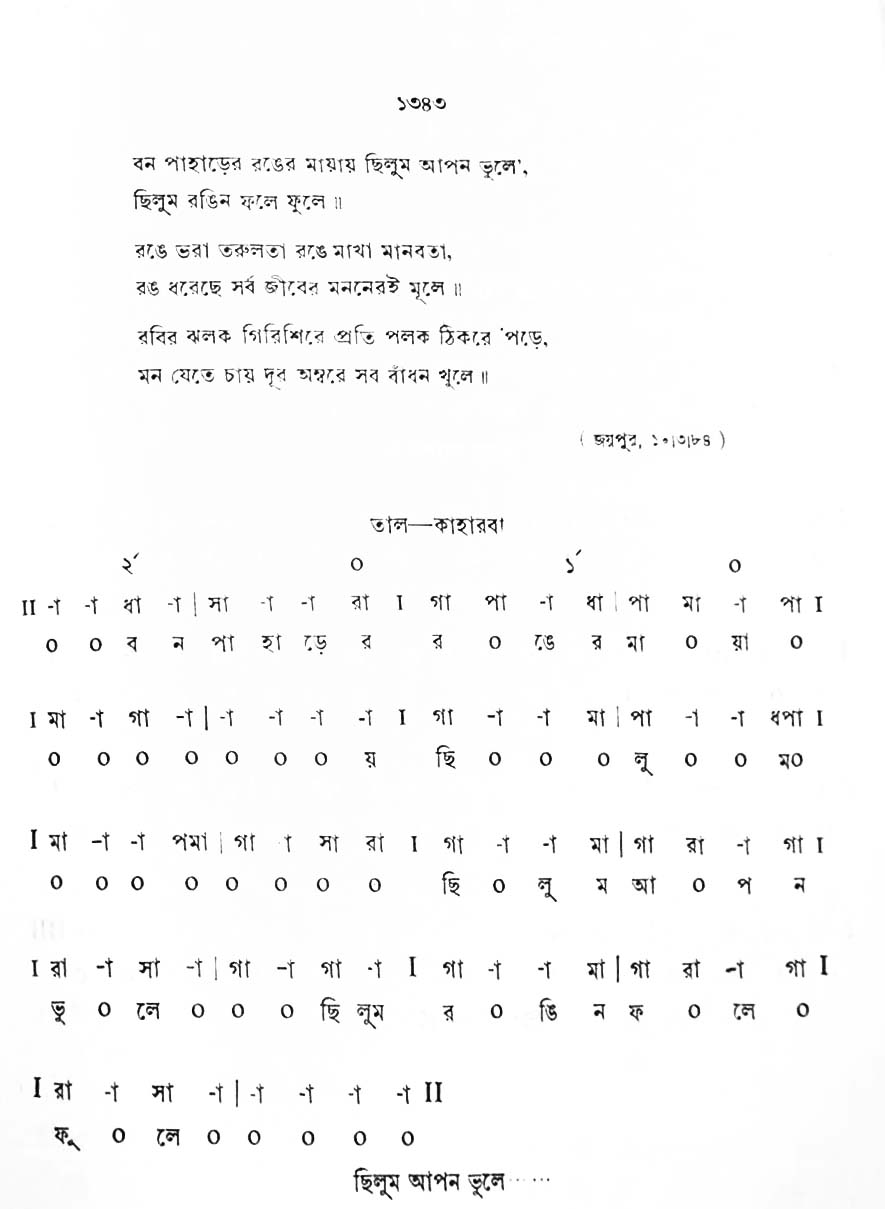 ১৩৪৩
বন পাহাড়ের রঙের মায়ায় ছিলুম আপন ভুলে',
ছিলুম রঙিন ফলে ফুলে॥
রঙে ভরা তরুলতা রঙে মাখা মানবতা,
রঙ ধরেছে সর্ব জীবের মননেরই মূলে॥
রবির ঝলক গিরিশিরে প্রতি পলক ঠিকরে 'পড়ে,
মন যেতে চায় দূর অম্বরে সব বাঁধন খুলে॥
( জয়পুর, ১০|৩|৮৪ )
তাল—কাহারবা
২´ ০ ১´ ০
II -া -া ধা -া | সা -া -া রা I গা পা -া ধা | পা মা -া পা I
০ ০ ব ন পা হা ড়ে র র ০ ঙে র মা ০ য়া ০
I মা -া গা -া | -া -া -া -া I গা -া -া মা | পা -া -া ধপা I
০ ০ ০ ০ ০ ০ ০ য় ছি ০ ০ ০ লু ০ ০ ম০
I মা -া -া পমা | গা -া সা রা I গা -া -া মা | গা রা -া গা I
০ ০ ০ ০ ০ ০ ০ ০ ছি ০ লু ম আ ০ প ন
I রা -া সা -া | গা -া গা -া I গা -া -া মা | গা রা -া গা I
ভু ০ লে ০ ০ ০ ছি লুম র ০ ঙি ন ফ ০ লে ০
I রা -া সা -া | -া -া -া -া II
ফু ০ লে ০ ০ ০ ০ ০
ছিলুম আপন ভুলে…...